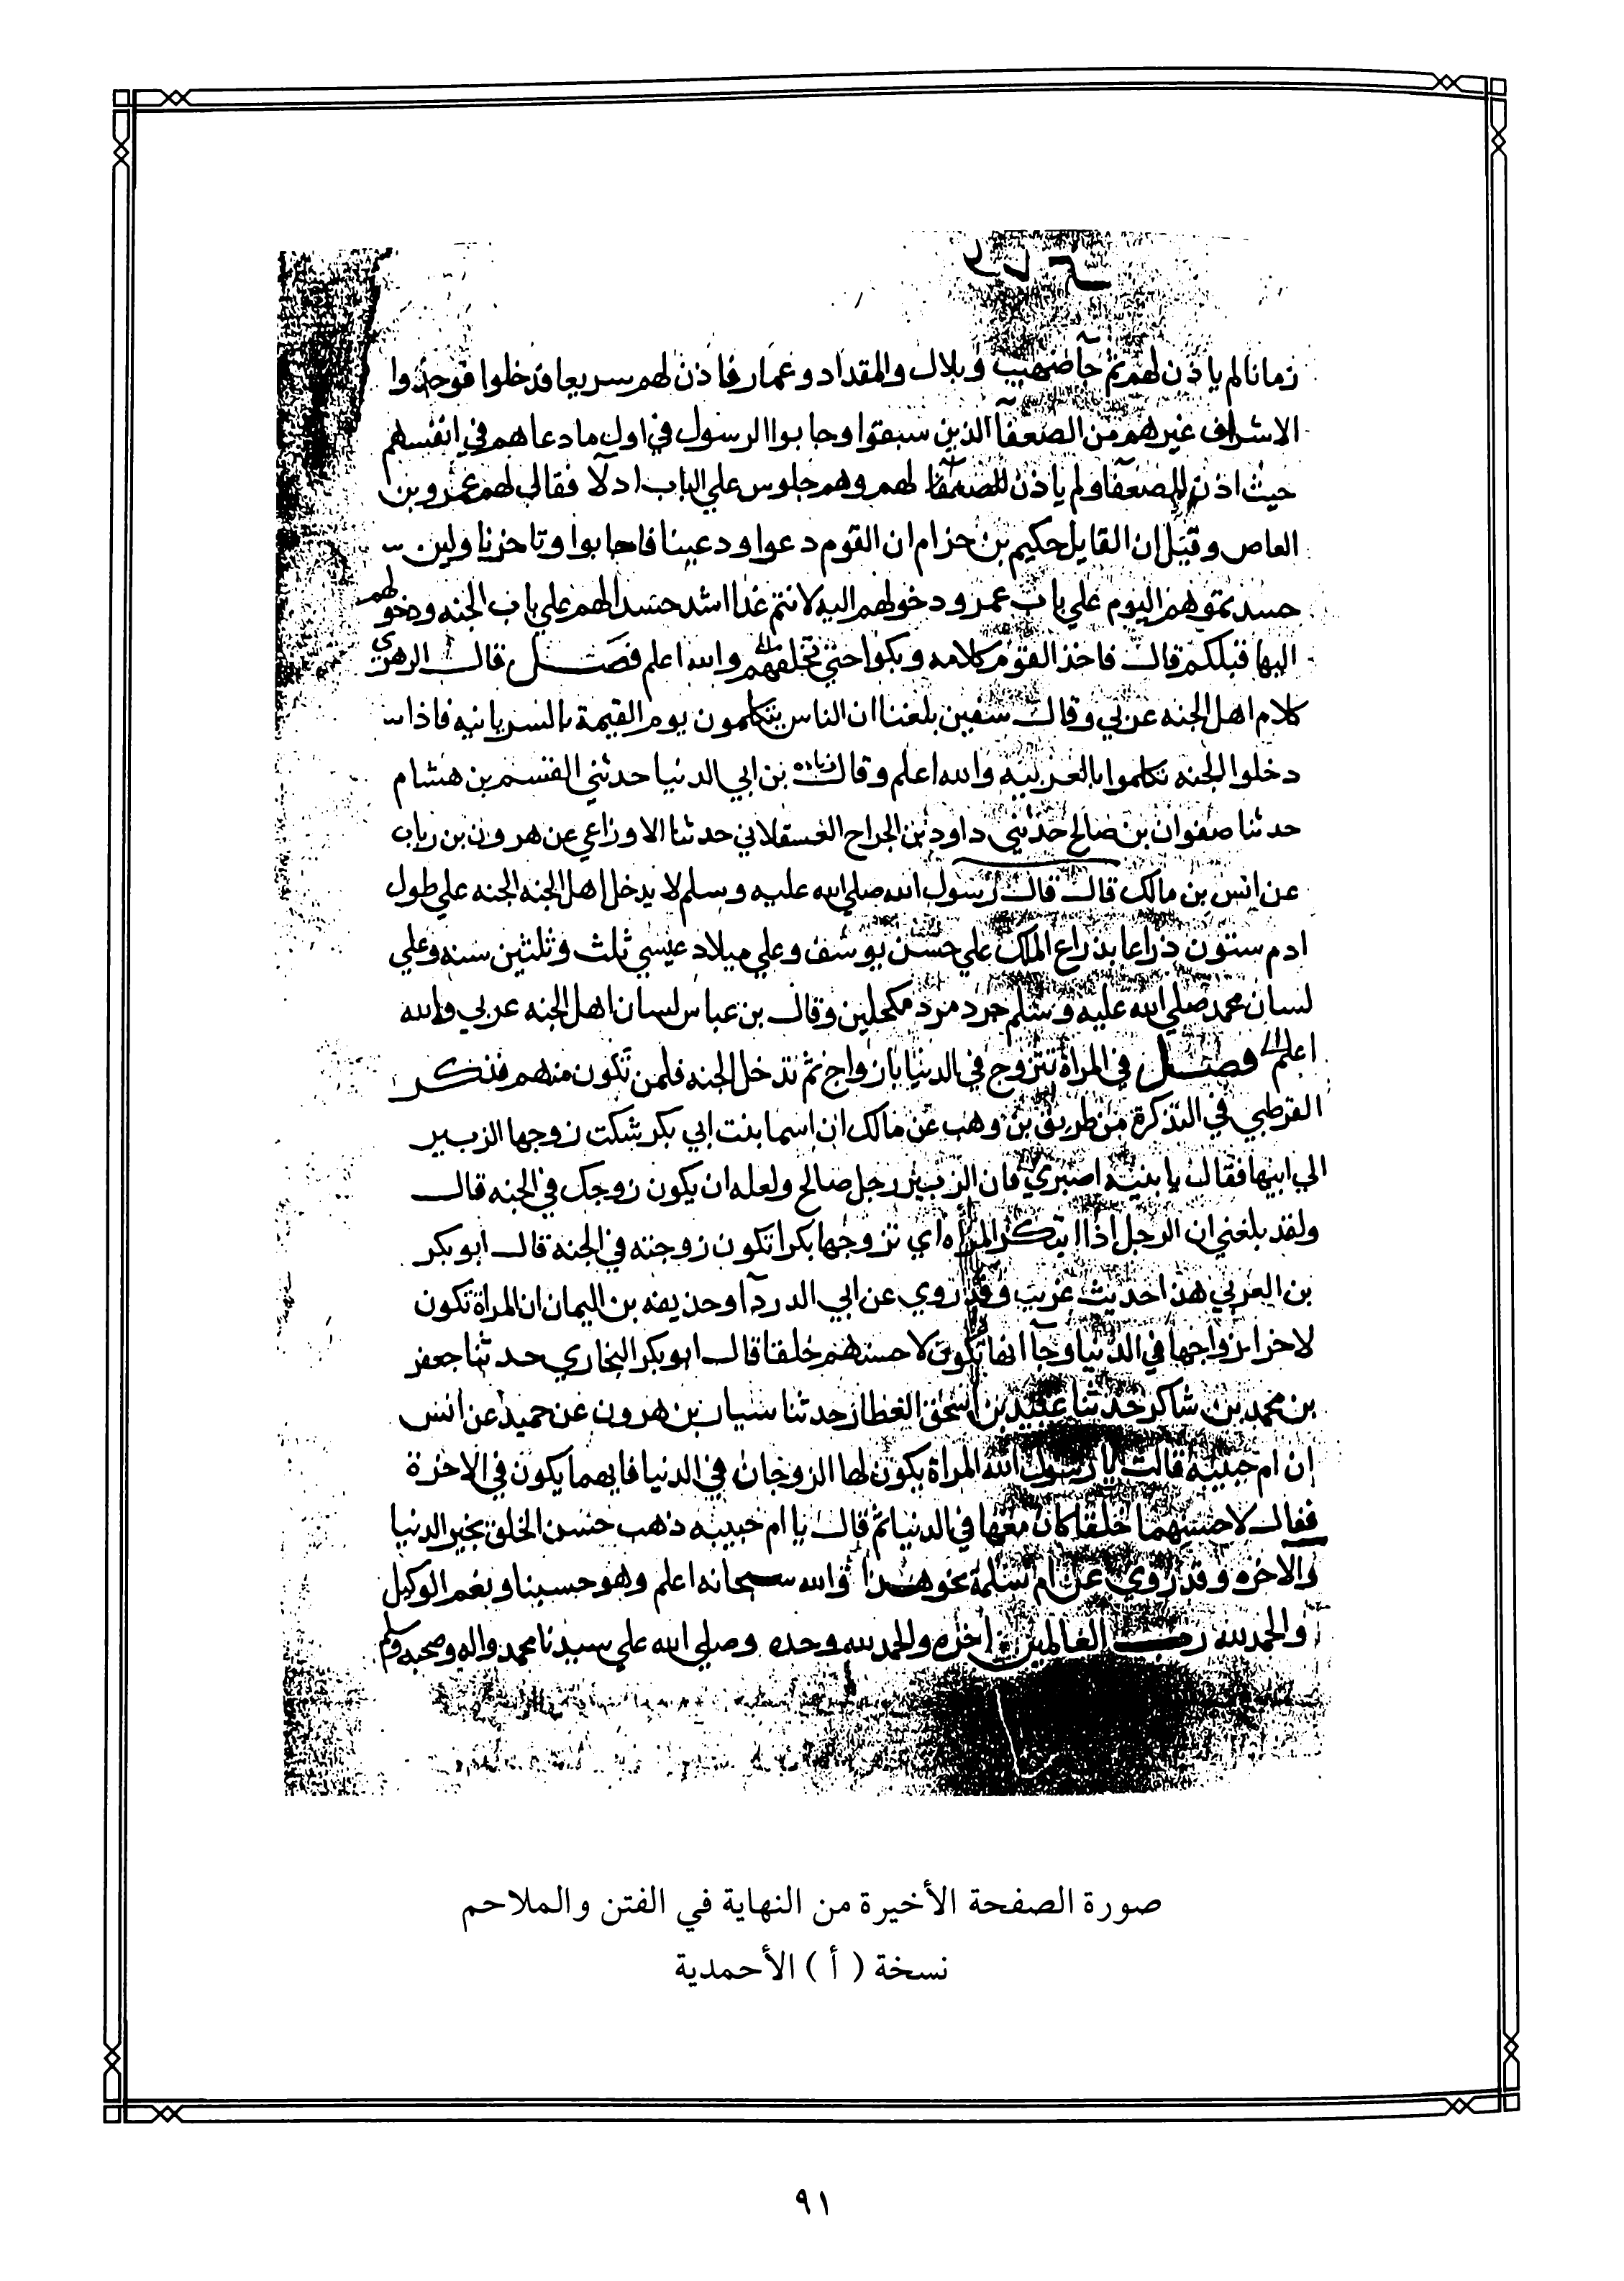 زمانا لم ياذن لهم ثم جا صهيب وبلال والمقداد وعمار فاذن لهم سريعا فدخلوا فوجدوا
الاشراف غيرهم من الضعفا الذين سبقوا وجابوا الرسول في اول ما دعاهم في انفسهم
حيث اذن للضعفا ولم ياذن لهم وهم جلوس علي الباب اذلا فقال لهم عمرو بن
العاص وقيل ان القايل حكيم بن حزام ان القوم دعوا ودعينا فاجابوا وتاخرنا ولين
حسدتموهم اليوم علي باب عمر ودخولهم اليه لانتم غدا اشد حسدا لهم علي باب الجنه ودخولهم
اليها قبلكم قال فاخذ القوم كلامه وبكوا حتي والله اعلم فصل قال الزهري
كلام اهل الجنه عربي وقال سفين بلغنا ان الناس يتكلمون يوم القيمة بالسريانيه فاذا
دخلوا الجنه تكلموا بالعربيه والله اعلم وقال بن ابي الدنيا حدثني القسم بن هشام
حدثنا صفوان بن صالح حدثني داود بن الجراح العسقلاني حدثنا الاوزاعي عن هرون بن رياب
عن انس بن مالك قال قال رسول الله صلي الله عليه وسلم لا يدخل اهل الجنه الجنه علي طول
ادم ستون ذراعا بذراع الملك علي حسن يوسف وعلي ميلاد عيسي ثلث وثلثين سنه وعلي
لسان محمد صلي الله عليه وسلم جرد مرد مكحلين وقال بن عباس لسان اهل الجنه عربي والله
اعلم فصل في المراة تتزوج في الدنيا بازواج ثم تدخل الجنه فلمن تكون منهم فذكر
القرطبي في التذكرة من طريق بن وهب عن مالك ان اسما بنت ابي بكر شكت زوجها الزبير
الي ابيها فقال يا بنيه اصبري فان الزبير رجل صالح ولعله ان يكون زوجك في الجنه قال
ولقد بلغني ان الرجل اذا ابتكر المراه اي تزوجها بكرا تكون زوجته في الجنه قال ابو بكر
بن العربي هذا حديث غريب وقد روي عن ابي الدردآ وحذيفه بن اليمان ان المراة تكون
لاخر ازواجها في الدنيا وجآ انها تكون لاحسنهم خلقا قال ابو بكر النجاري حدثنا جعفر
بن محمد بن شاكر حدثنا عبيد بن اسحق العطار حدثنا سيار بن هرون عن حميد عن انس
ان ام حبيبه قالت يا رسول الله المراة يكون لها الزوجان في الدنيا فايهما يكون في الاخرة
فقال لاحسنهما خلقا كان معها في الدنيا ثم قال يا ام حبيبه ذهب حسن الخلق بخير الدنيا
والاخره وقد روي عن ام سلمة نحو هذا والله سبحانه اعلم وهو حسبنا ونعم الوكيل
والحمد لله رب العالمين اخره والحمد لله وحده وصلي الله علي سيدنا محمد واله وصحبه وسلم
صورة الصفحة الأخيرة من النهاية في الفتن والملاحم
نسخة ( أ ) الأحمدية
٩١